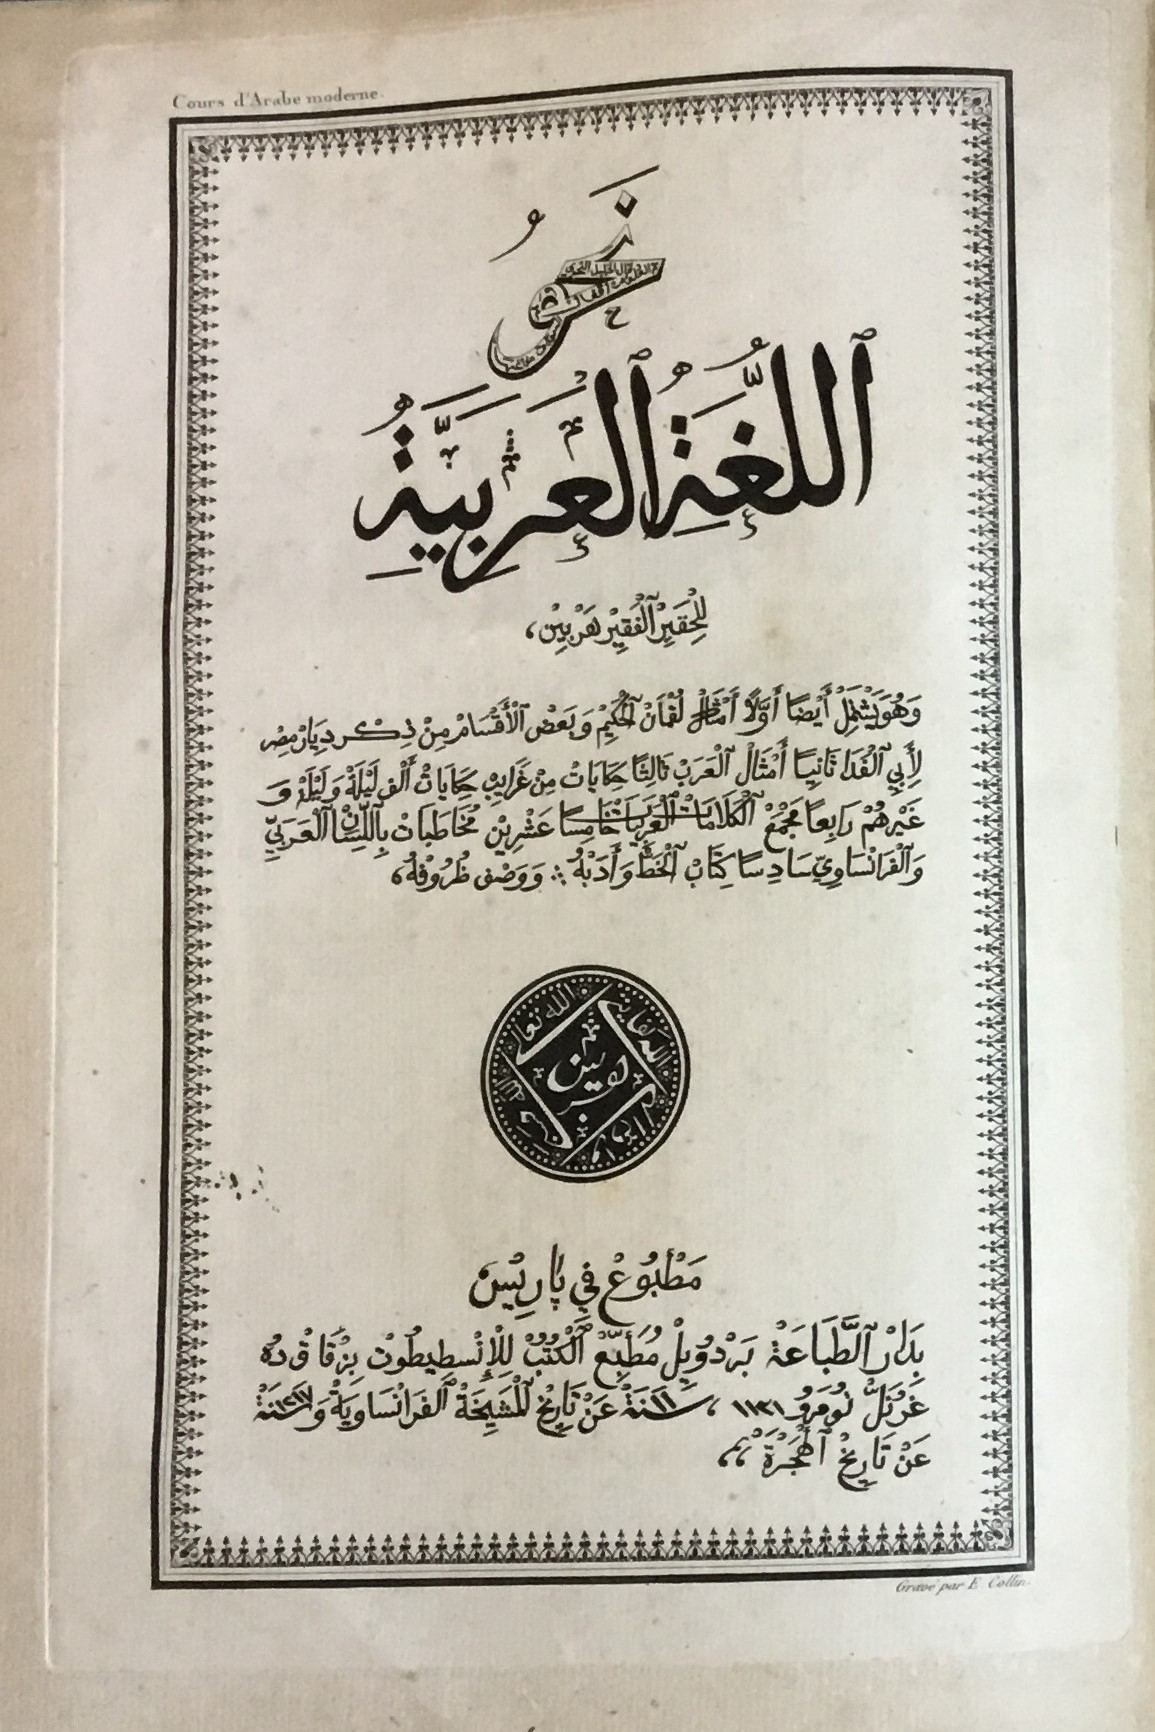 Cours d'Arabe moderne.
نَحْوُ
اللُّغَةُ الْعَرَبِيَّةُ
لِلْحَقِيرْ الْفَقِيرْ هَرْبِينْ،
وَهُوَ يَشْتَمِلْ أَيْضًا أَوَّلًا أَمْثَالْ لُقْمَانْ الْحَكِيمْ وَبَعْضْ الْأَقْسَامْ مِنْ ذِكْر دِيَارْ مِصْر
لِأَبِي الْفُدَا ثَانِيًا أَمْثَالْ الْعَرَبْ ثَالِثًا حِكَايَاتْ مِنْ غَرَايِبْ حِكَايَاتْ أَلْفْ لَيْلَةْ وَلَيْلَةْ وَ
غَيْرهُمْ رَابِعًا مَجْمَعْ الْكَلَامَاتْ الْعَرَبِيَاتْ خَامِسًا عَشْرِينْ مُخَاطَبَاتْ بِاللِّسَانْ الْعَرَبِيّ
وَالْفَرَانْسَاوِيّ سَادِسًا كِتَابْ الْخَطّْ وَأَدَبْهُ وَوَصْف ظُرُوفْهُ،
مَطْبُوعْ فِي پَارِيسْ
بِدَارْ الطَّبَاعَةْ بَرْدُوِيلْ مُطَبِّعْ الْكُتُبْ لِلْإِنْسطِيطُوتْ بِزْقَاقْ دُه
غِرُنَلّْ نُومَرُو ١١٣١، سَنَةْ ١١ عَنْ تَارِيخْ الْمَشِيخَةْ الْفَرَانْسَاوِيَةْ وَسَنَةْ ١٢١٧
عَنْ تَارِيخْ الْهَجْرَةْ
Gravé par E. Collin.